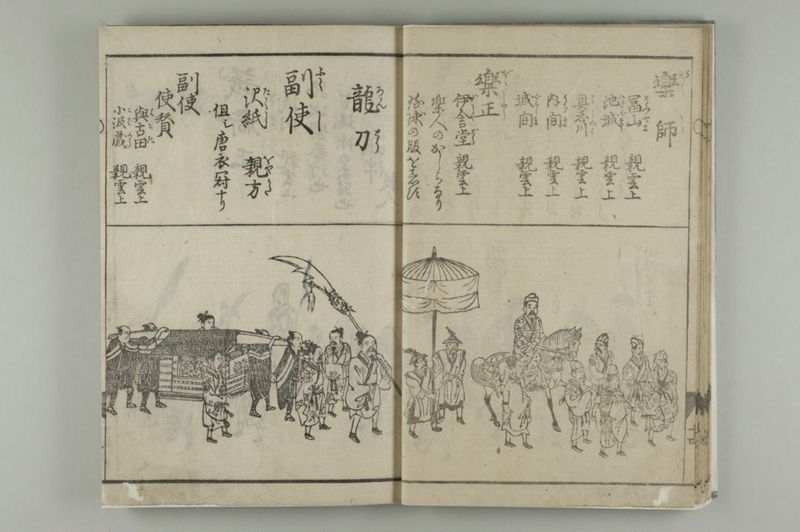 樂師
冨山 親雲上
池城 親雲上
具志川 親雲上
内間 親雲上
城間 親雲上
樂正
伊舎堂 親雲上
楽人のかしらなり
琉球の服を着す
龍刀
副使
沢紙 親方
但シ唐衣冠ナリ
副使
使賛
與古田 親雲上
小波蔵 親雲上